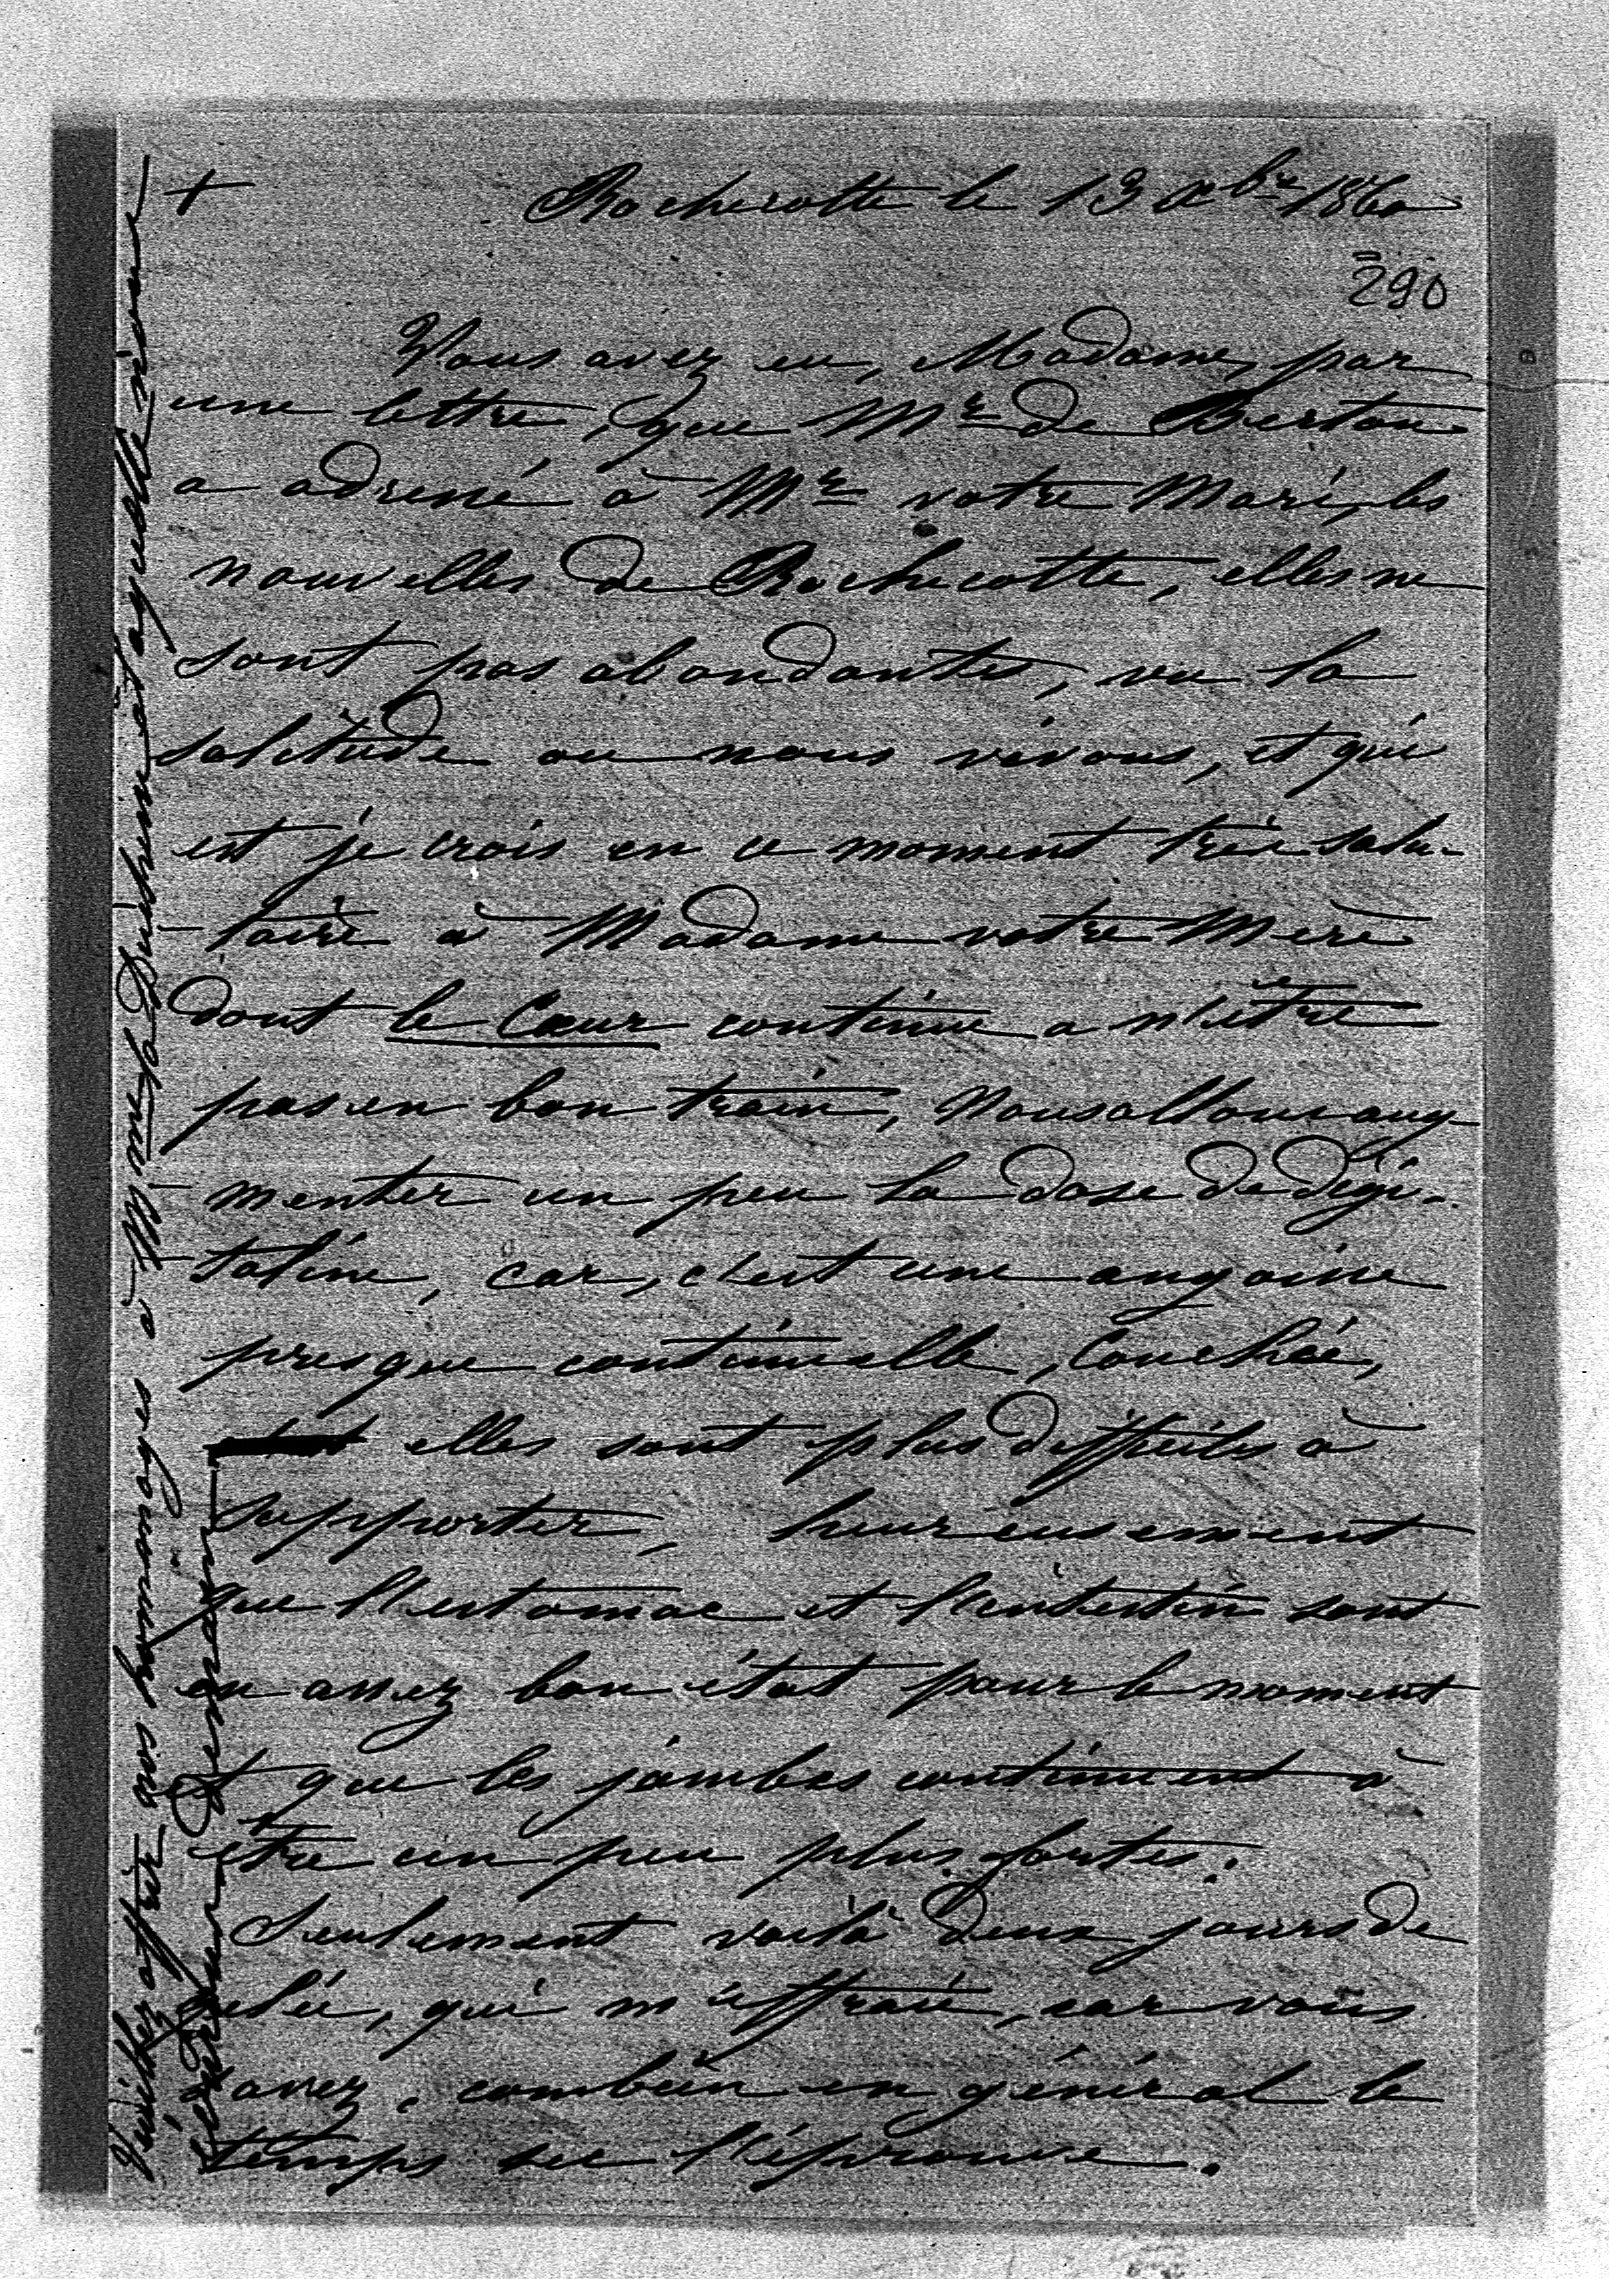 + Rochecotte le 13 Xbre 1860
290
Vous avez eu, Madame, par
une lettre, que Mr de Bertou
a adressé à Mr votre Mari, les
nouvelles de Rochecotte, elles ne
sont pas abondantes, vu la
solitude ou nous vivons, et qui
est je crois en ce moment très salu-
-taire à Madame votre Mère
dont le Cœur continue a n'être
pas en bon train, Nous allons aug-
-menter un peu la dose de digi-
-taline, car, c'est une angoisse
presque continuelle, Couchée,
elles sont plus difficiles à
supporter, heureusement
que l'estomac et l'intestin sont
en assez bon état pour le moment
et que les jambes continuent à
être un peu plus fortes.
Seulement voilà deux jours de
gelée, qui m'effraie, car vous
savez, combien en général le
temps sec l'éprouve.
Veuillez offrir nos hommages à Mme la Duchesse